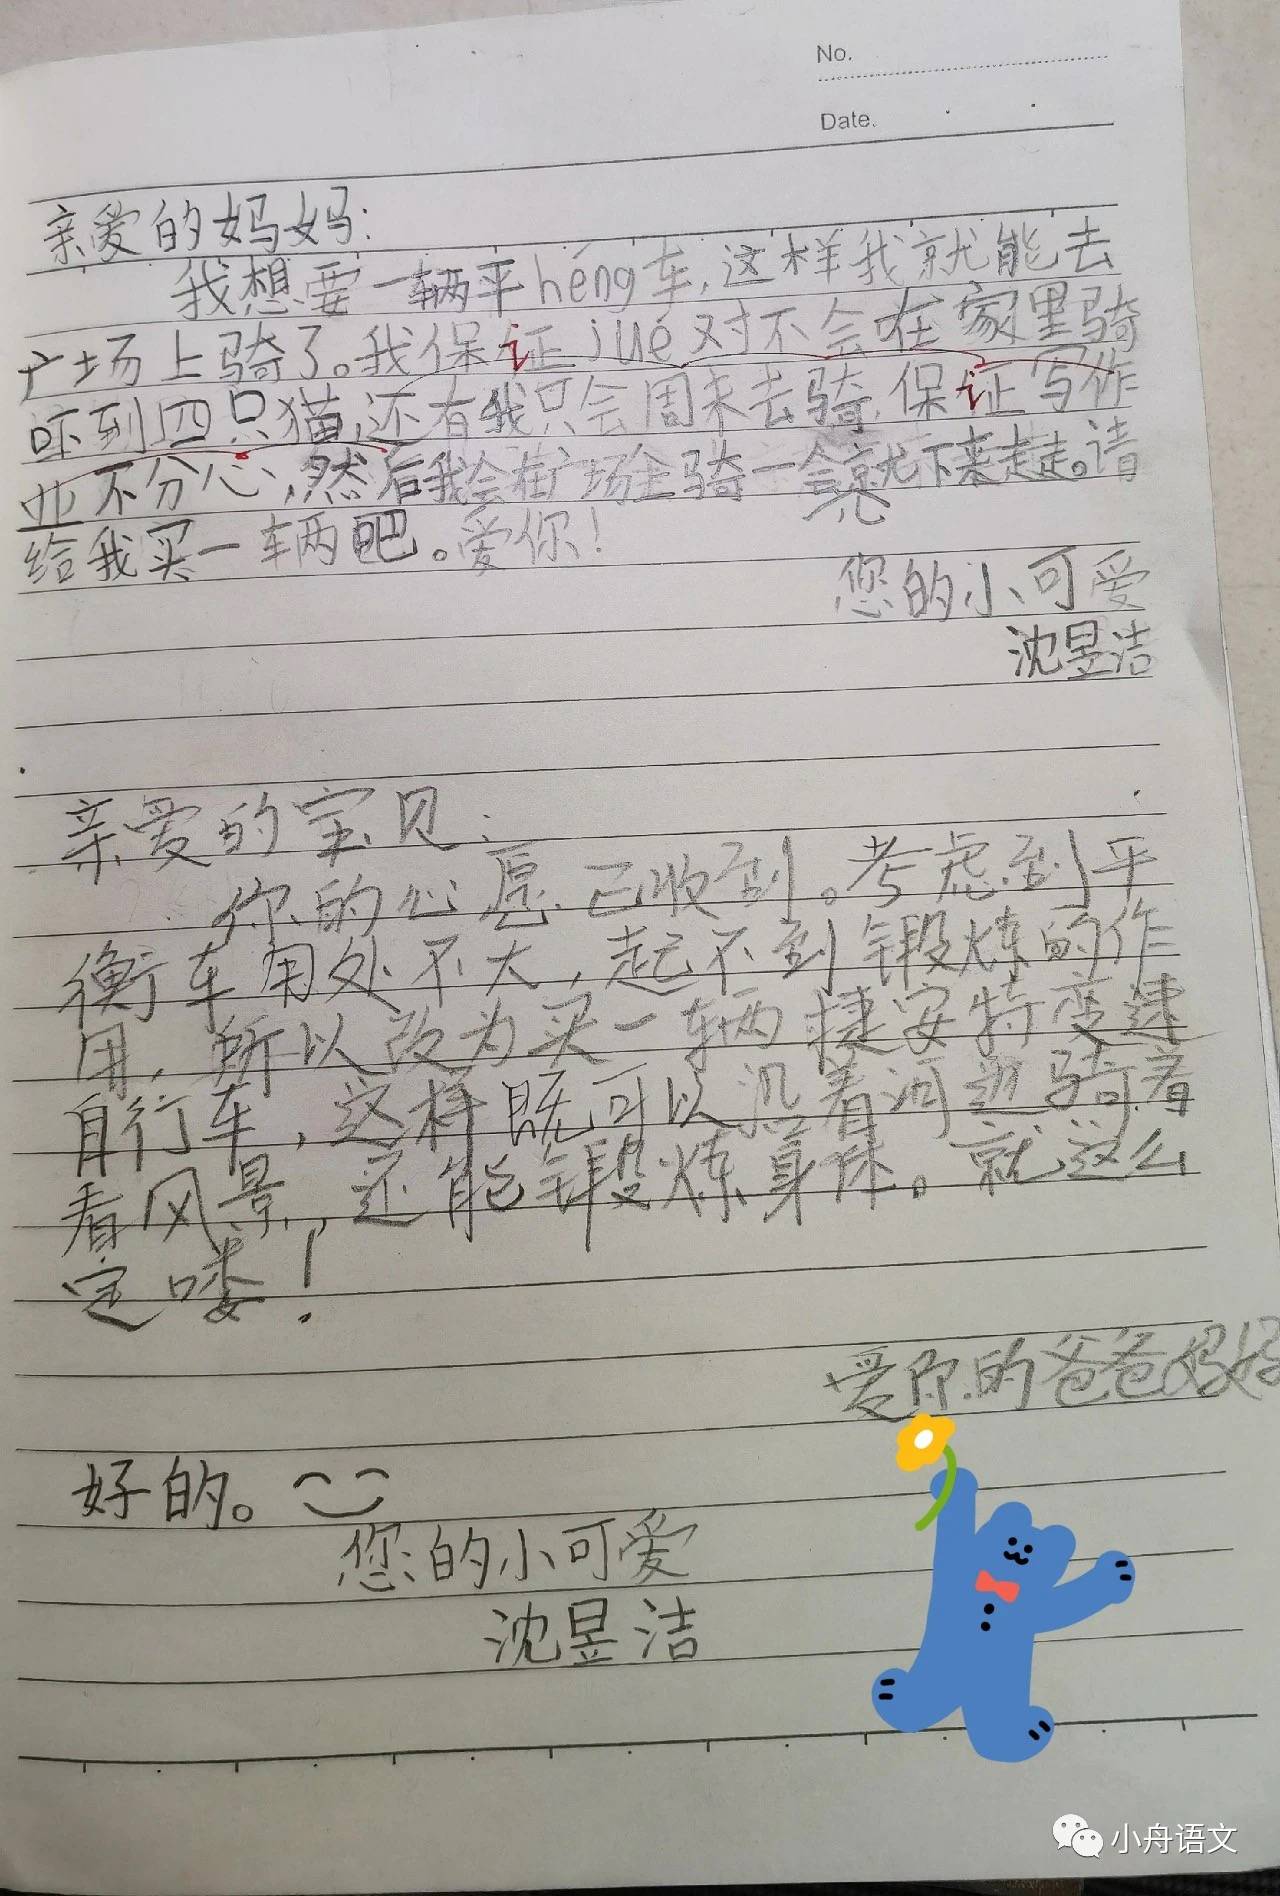 No.
Date.
亲爱的妈妈:
我想要一辆平héng车,这样我就能去
广场上骑了。我保证jué对不会在家里骑
吓到四只猫,还有我只会周末去骑,保证写作
业不分心,然后我会在广场上骑一会就下来走走。请
给我买一辆吧。爱你!
您的小可爱
沈昱洁
亲爱的宝贝:
你的心愿已收到。考虑到平
衡车用处不大,起不到锻炼的作
用,所以改为买一辆捷安特变速
自行车,这样既可以沿着河边骑着
看风景,还能锻炼身体。就这么
定喽!
爱你的爸爸妈妈
好的。
您的小可爱
沈昱洁
小舟语文